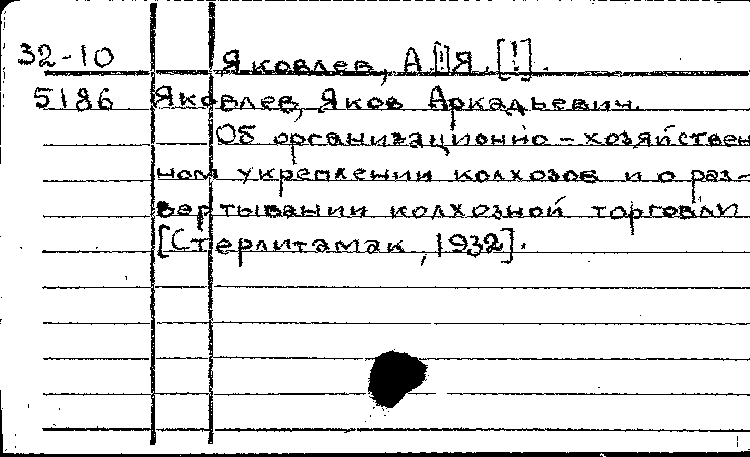 32-10 Яковлев, А[!]Я. [!].
5186 Яковлев, Яков Аркадьевич.
Об организационно-хозяйствен
ном укреплении колхозов и о раз-
вертывании колхозной торговли
[Стерлитамак, 1932].